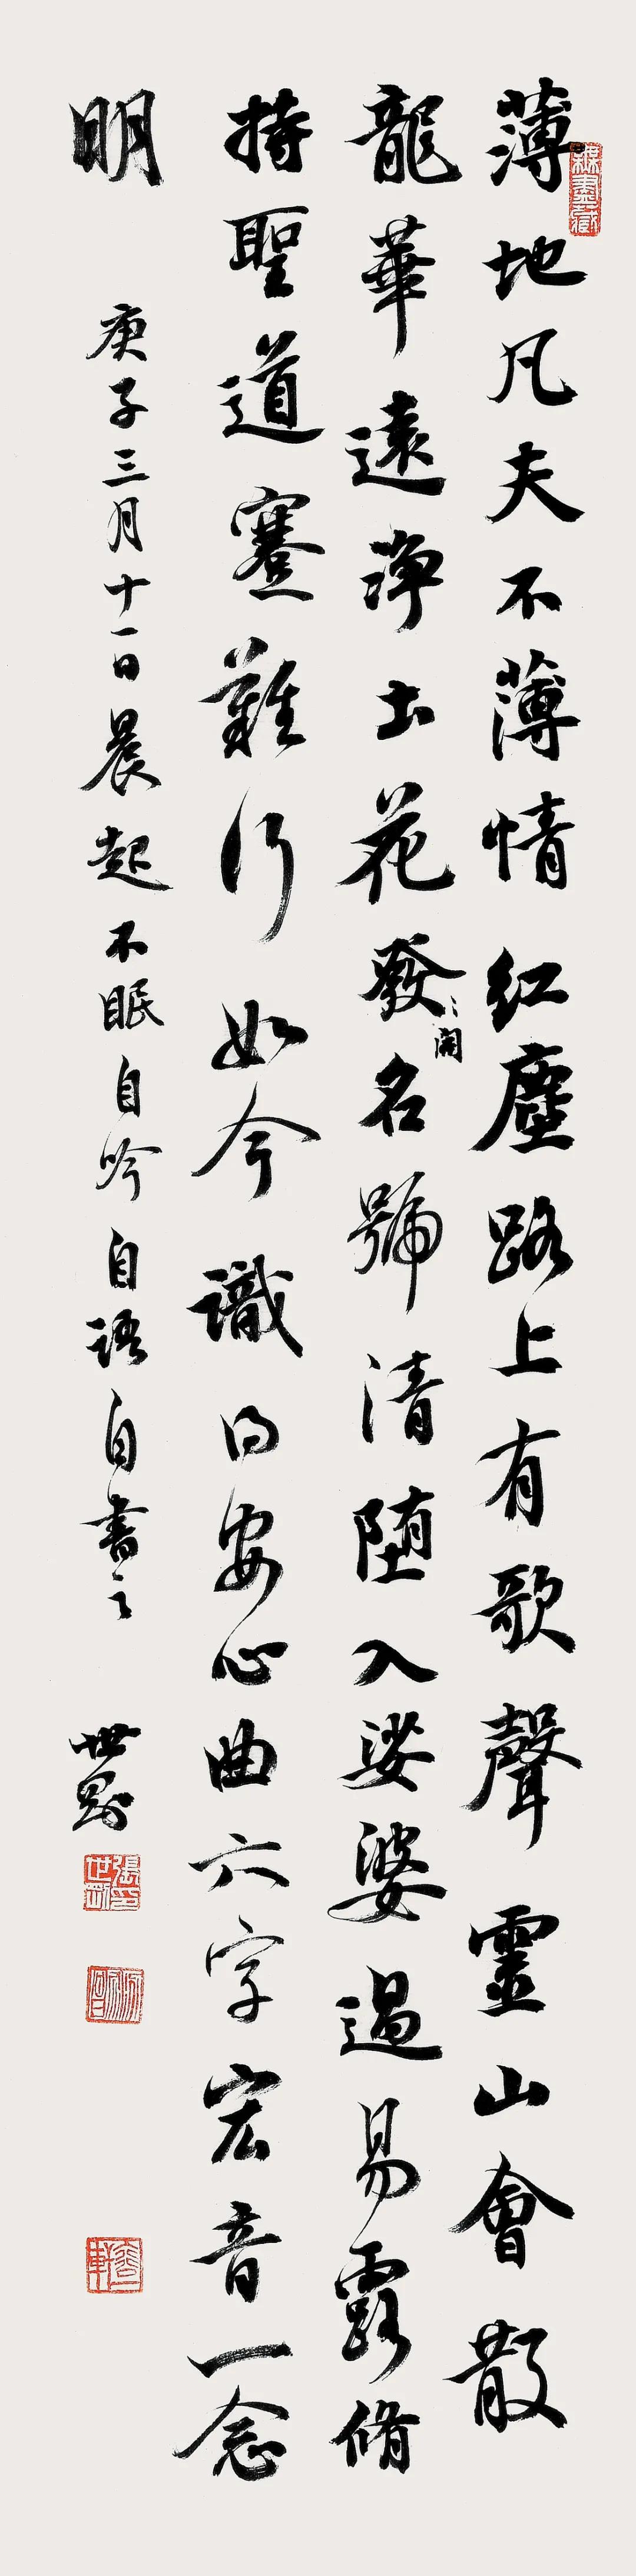 薄地凡夫不薄情紅塵路上有歌聲靈山會散
龍華遠淨土花發名號清墮入娑婆過易露脩
開
持聖道蹇難行如今識得安心曲六字宏音一念
明
庚子三月十一日晨起不眠自吟自語自書之
世剛
張世剛印